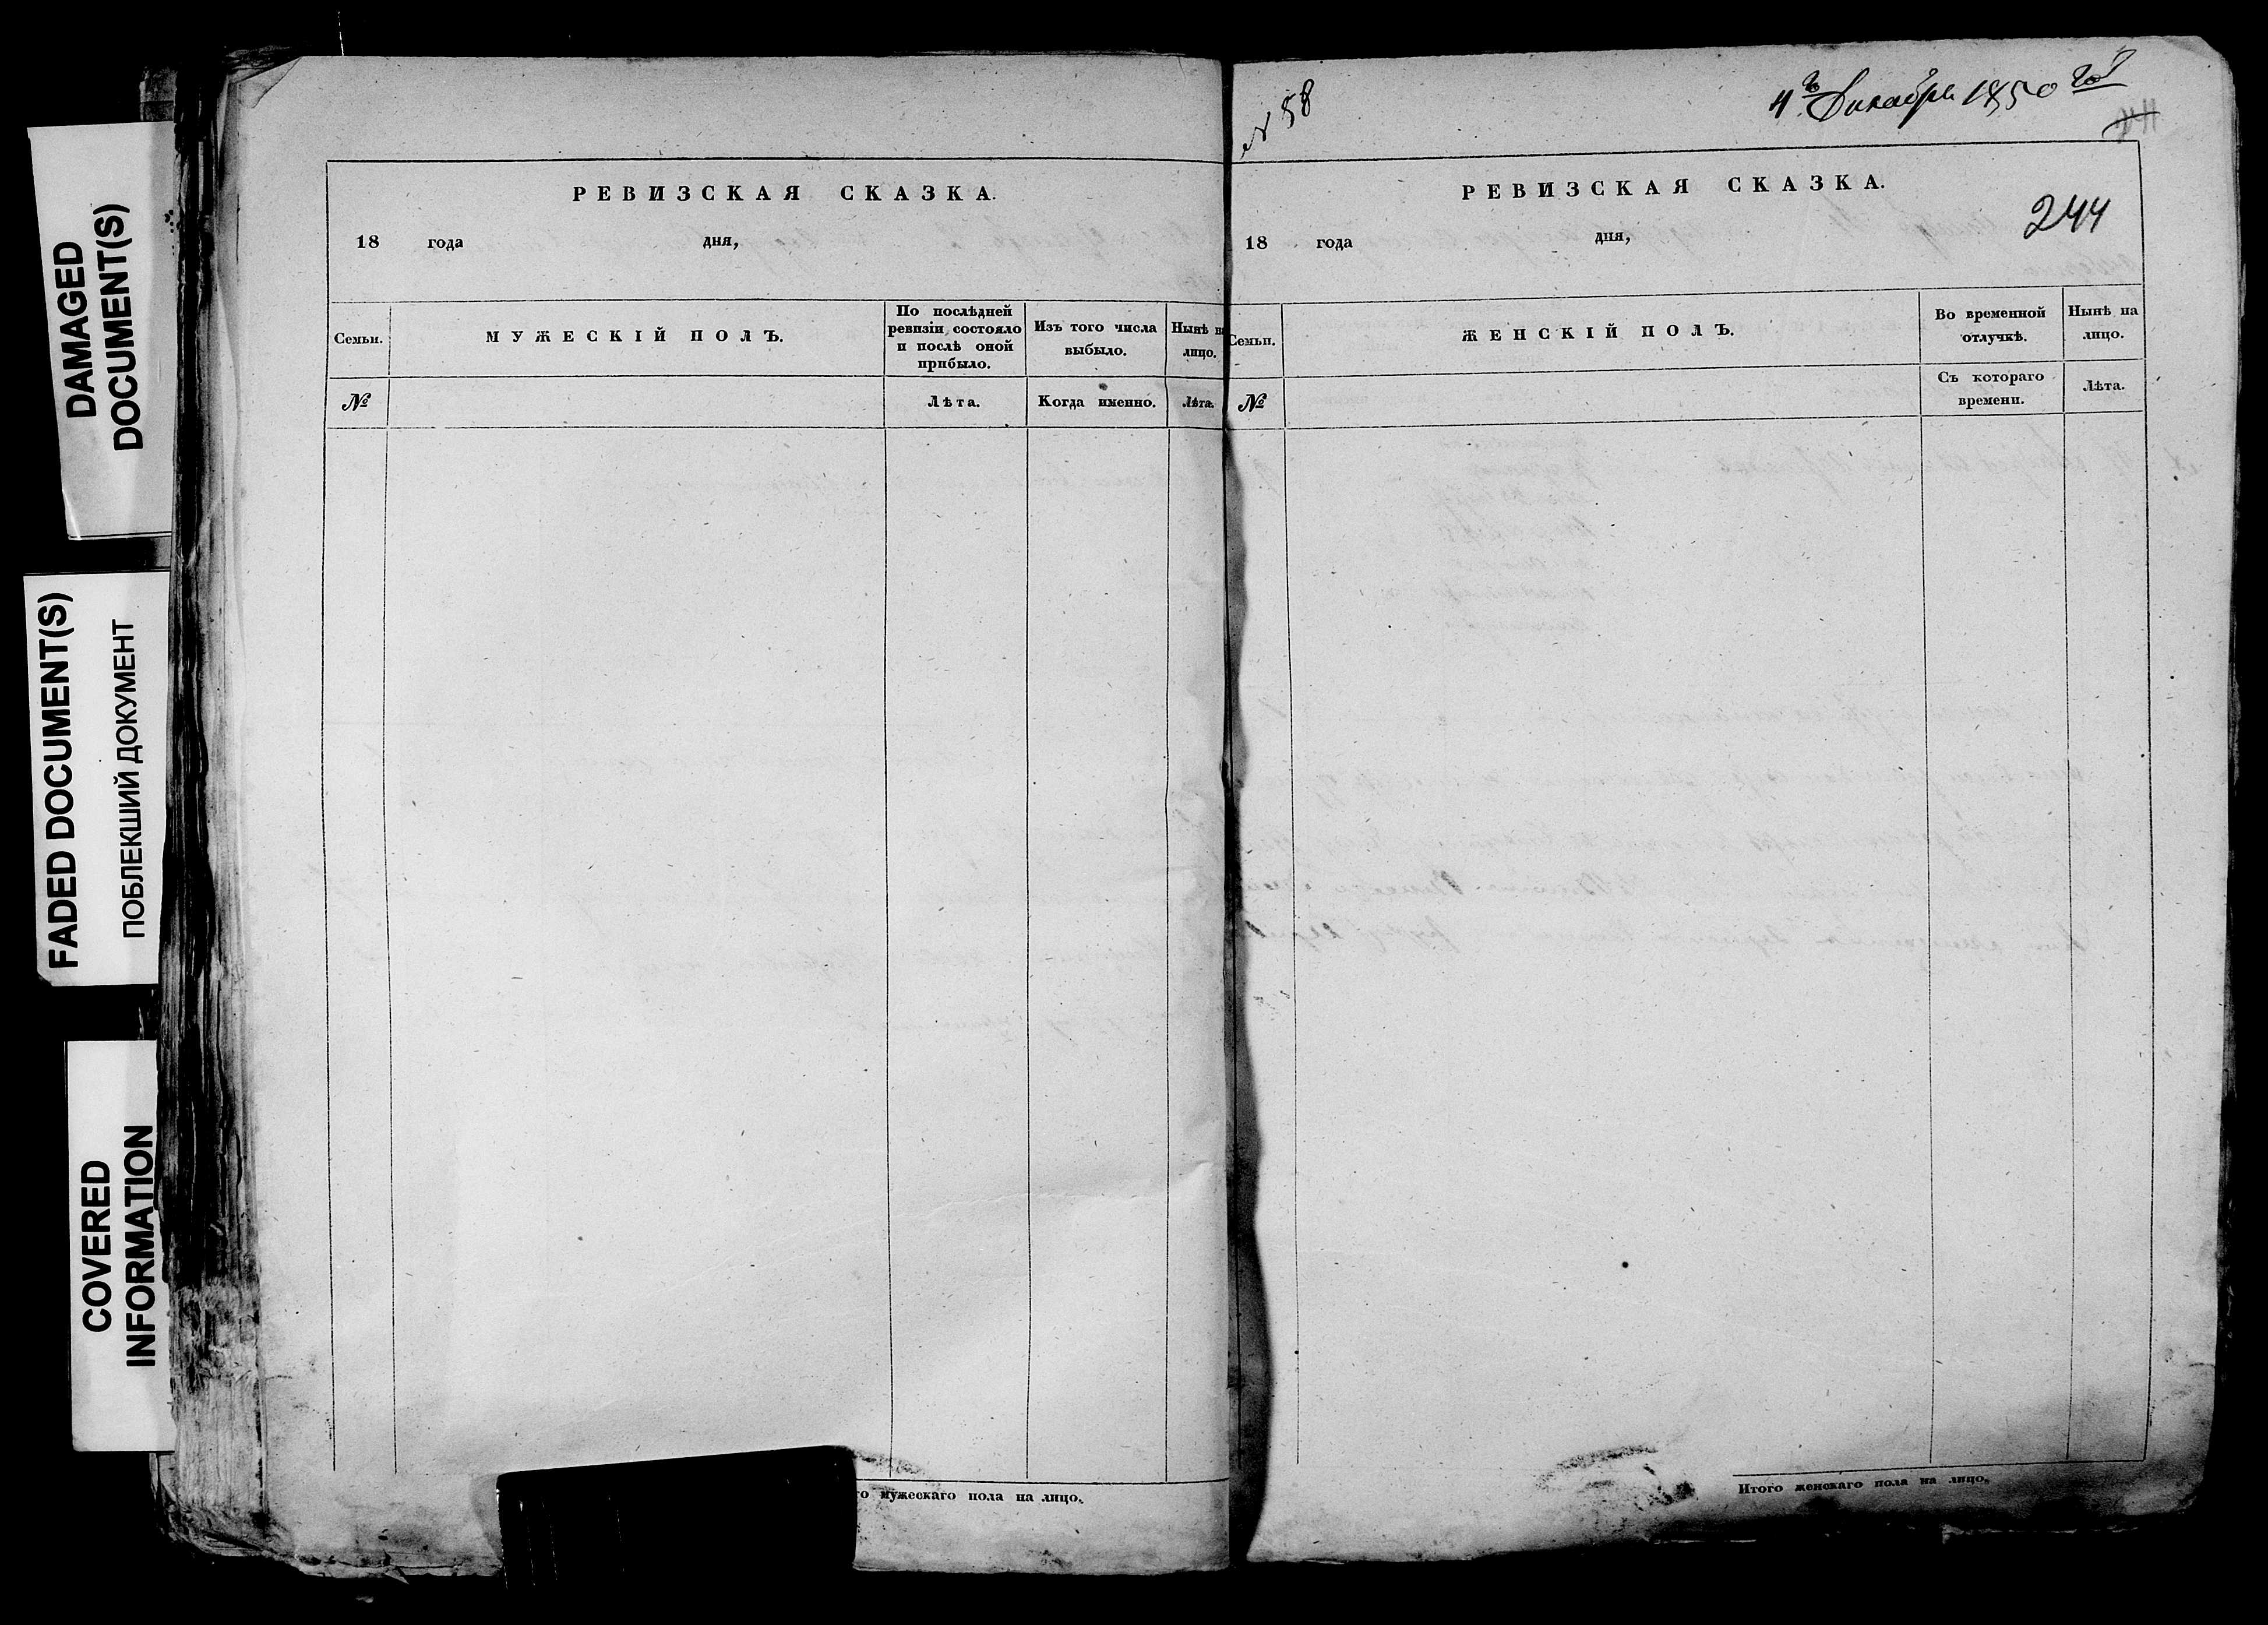 DAMAGED
DOCUMENT(S)
FADED DOCUMENT(S)
ПОБЛЕКШИЙ ДОКУМЕНТ
COVERED
INFORMATION
РЕВИЗСКАЯ СКАЗКА.
18 года дня,
Семьи.
МУЖЕСКІЙ ПОЛЪ.
По послѣдней
ревизіи состояло
и послѣ оной
прибыло.
Изъ того числа
выбыло.
Нынѣ на
лицо.
№
Лѣта.
Когда именно.
Лѣта.
го мужескаго пола на лицо.
№ 58
4го Декабря 1850 год
РЕВИЗСКАЯ СКАЗКА.
244
18 года дня,
Семьи.
ЖЕНСКІЙ ПОЛЪ.
Во временной
отлучкѣ.
Нынѣ на
лицо.
№
Съ котораго
времени.
Лѣта.
Итого женскаго пола на лицо.